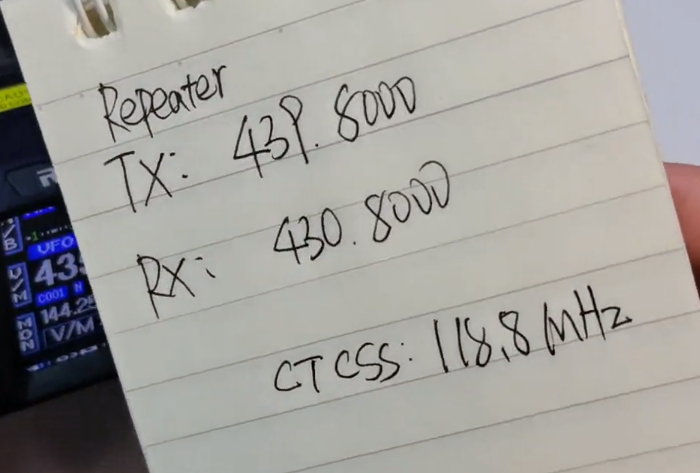 Repeater
TX: 439.8000
RX: 430.8000
CTCSS: 118.8 MHz
R
VFO
43
C001 N
144.25
V/M
U/M
MON